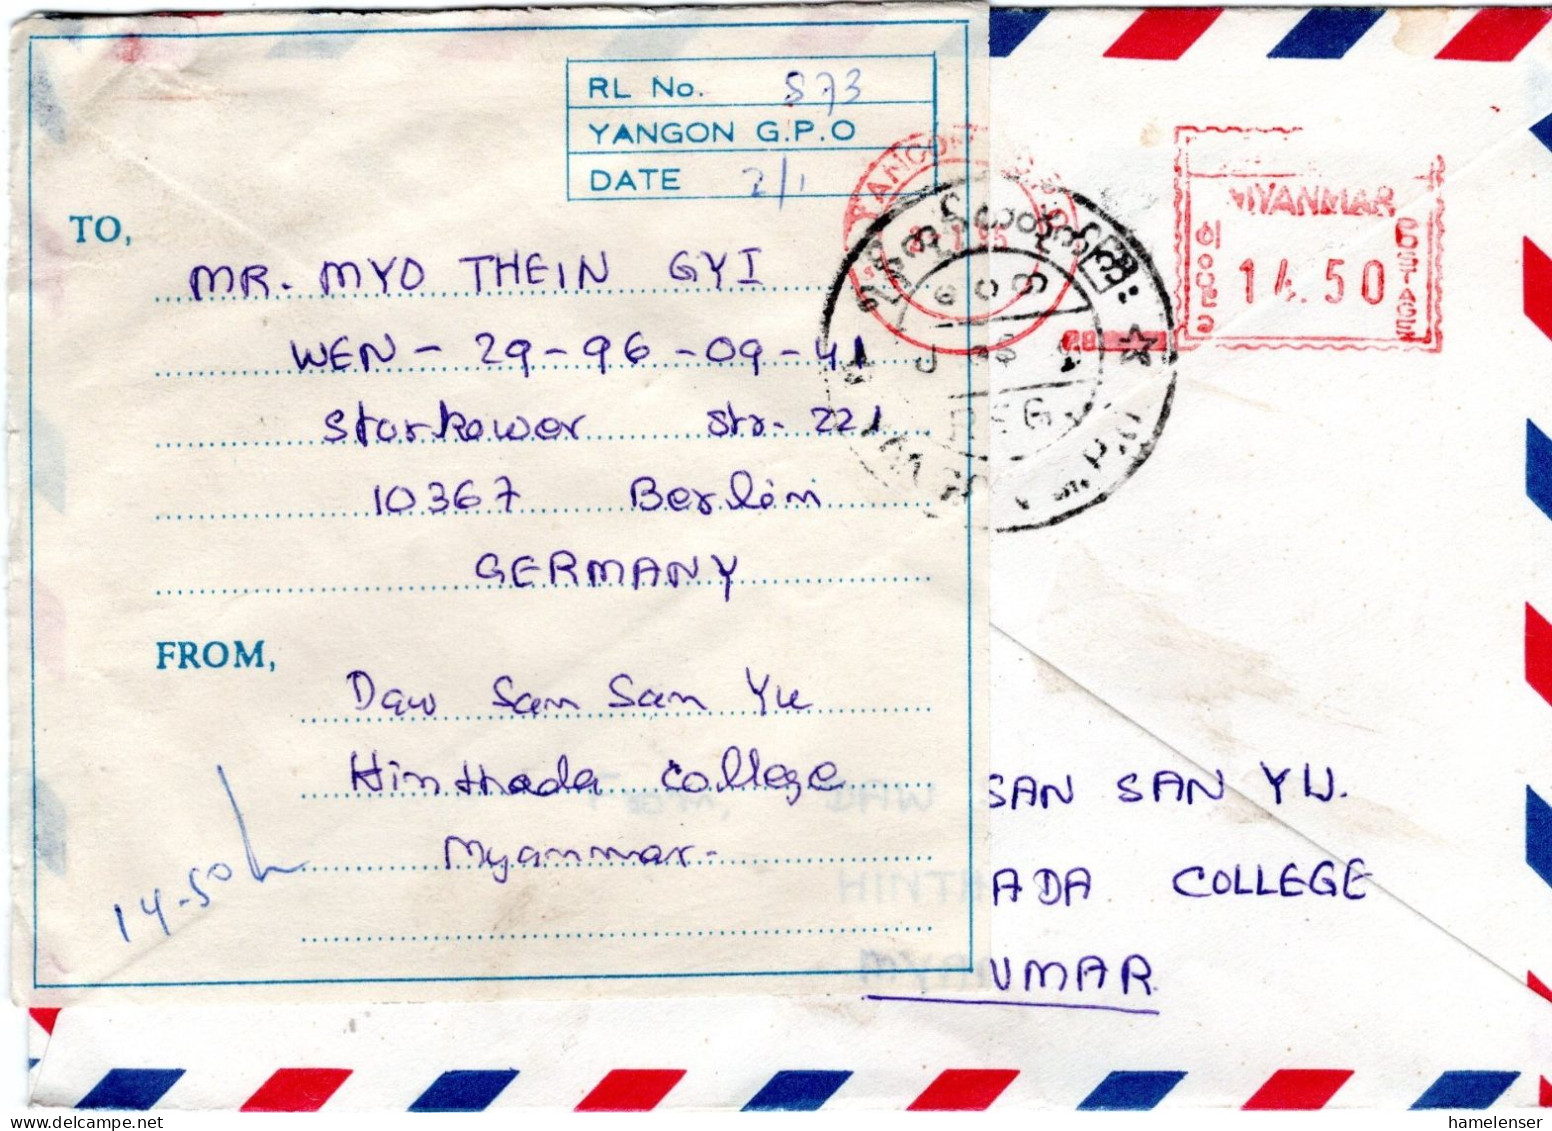 RL No. 573
YANGON G.P.O
DATE 2/1
TO,
MR. MYO THEIN GYI
WEN - 29-96-09-41
Storkower Str. 221
10367 Berlin
GERMANY
FROM,
Daw San San Yu
Hinthada College
Myanmar.
14-50
YANGON
MYANMAR
14.50
POSTAGE
SAN SAN YU.
ADA COLLEGE
NMAR
hamelenser